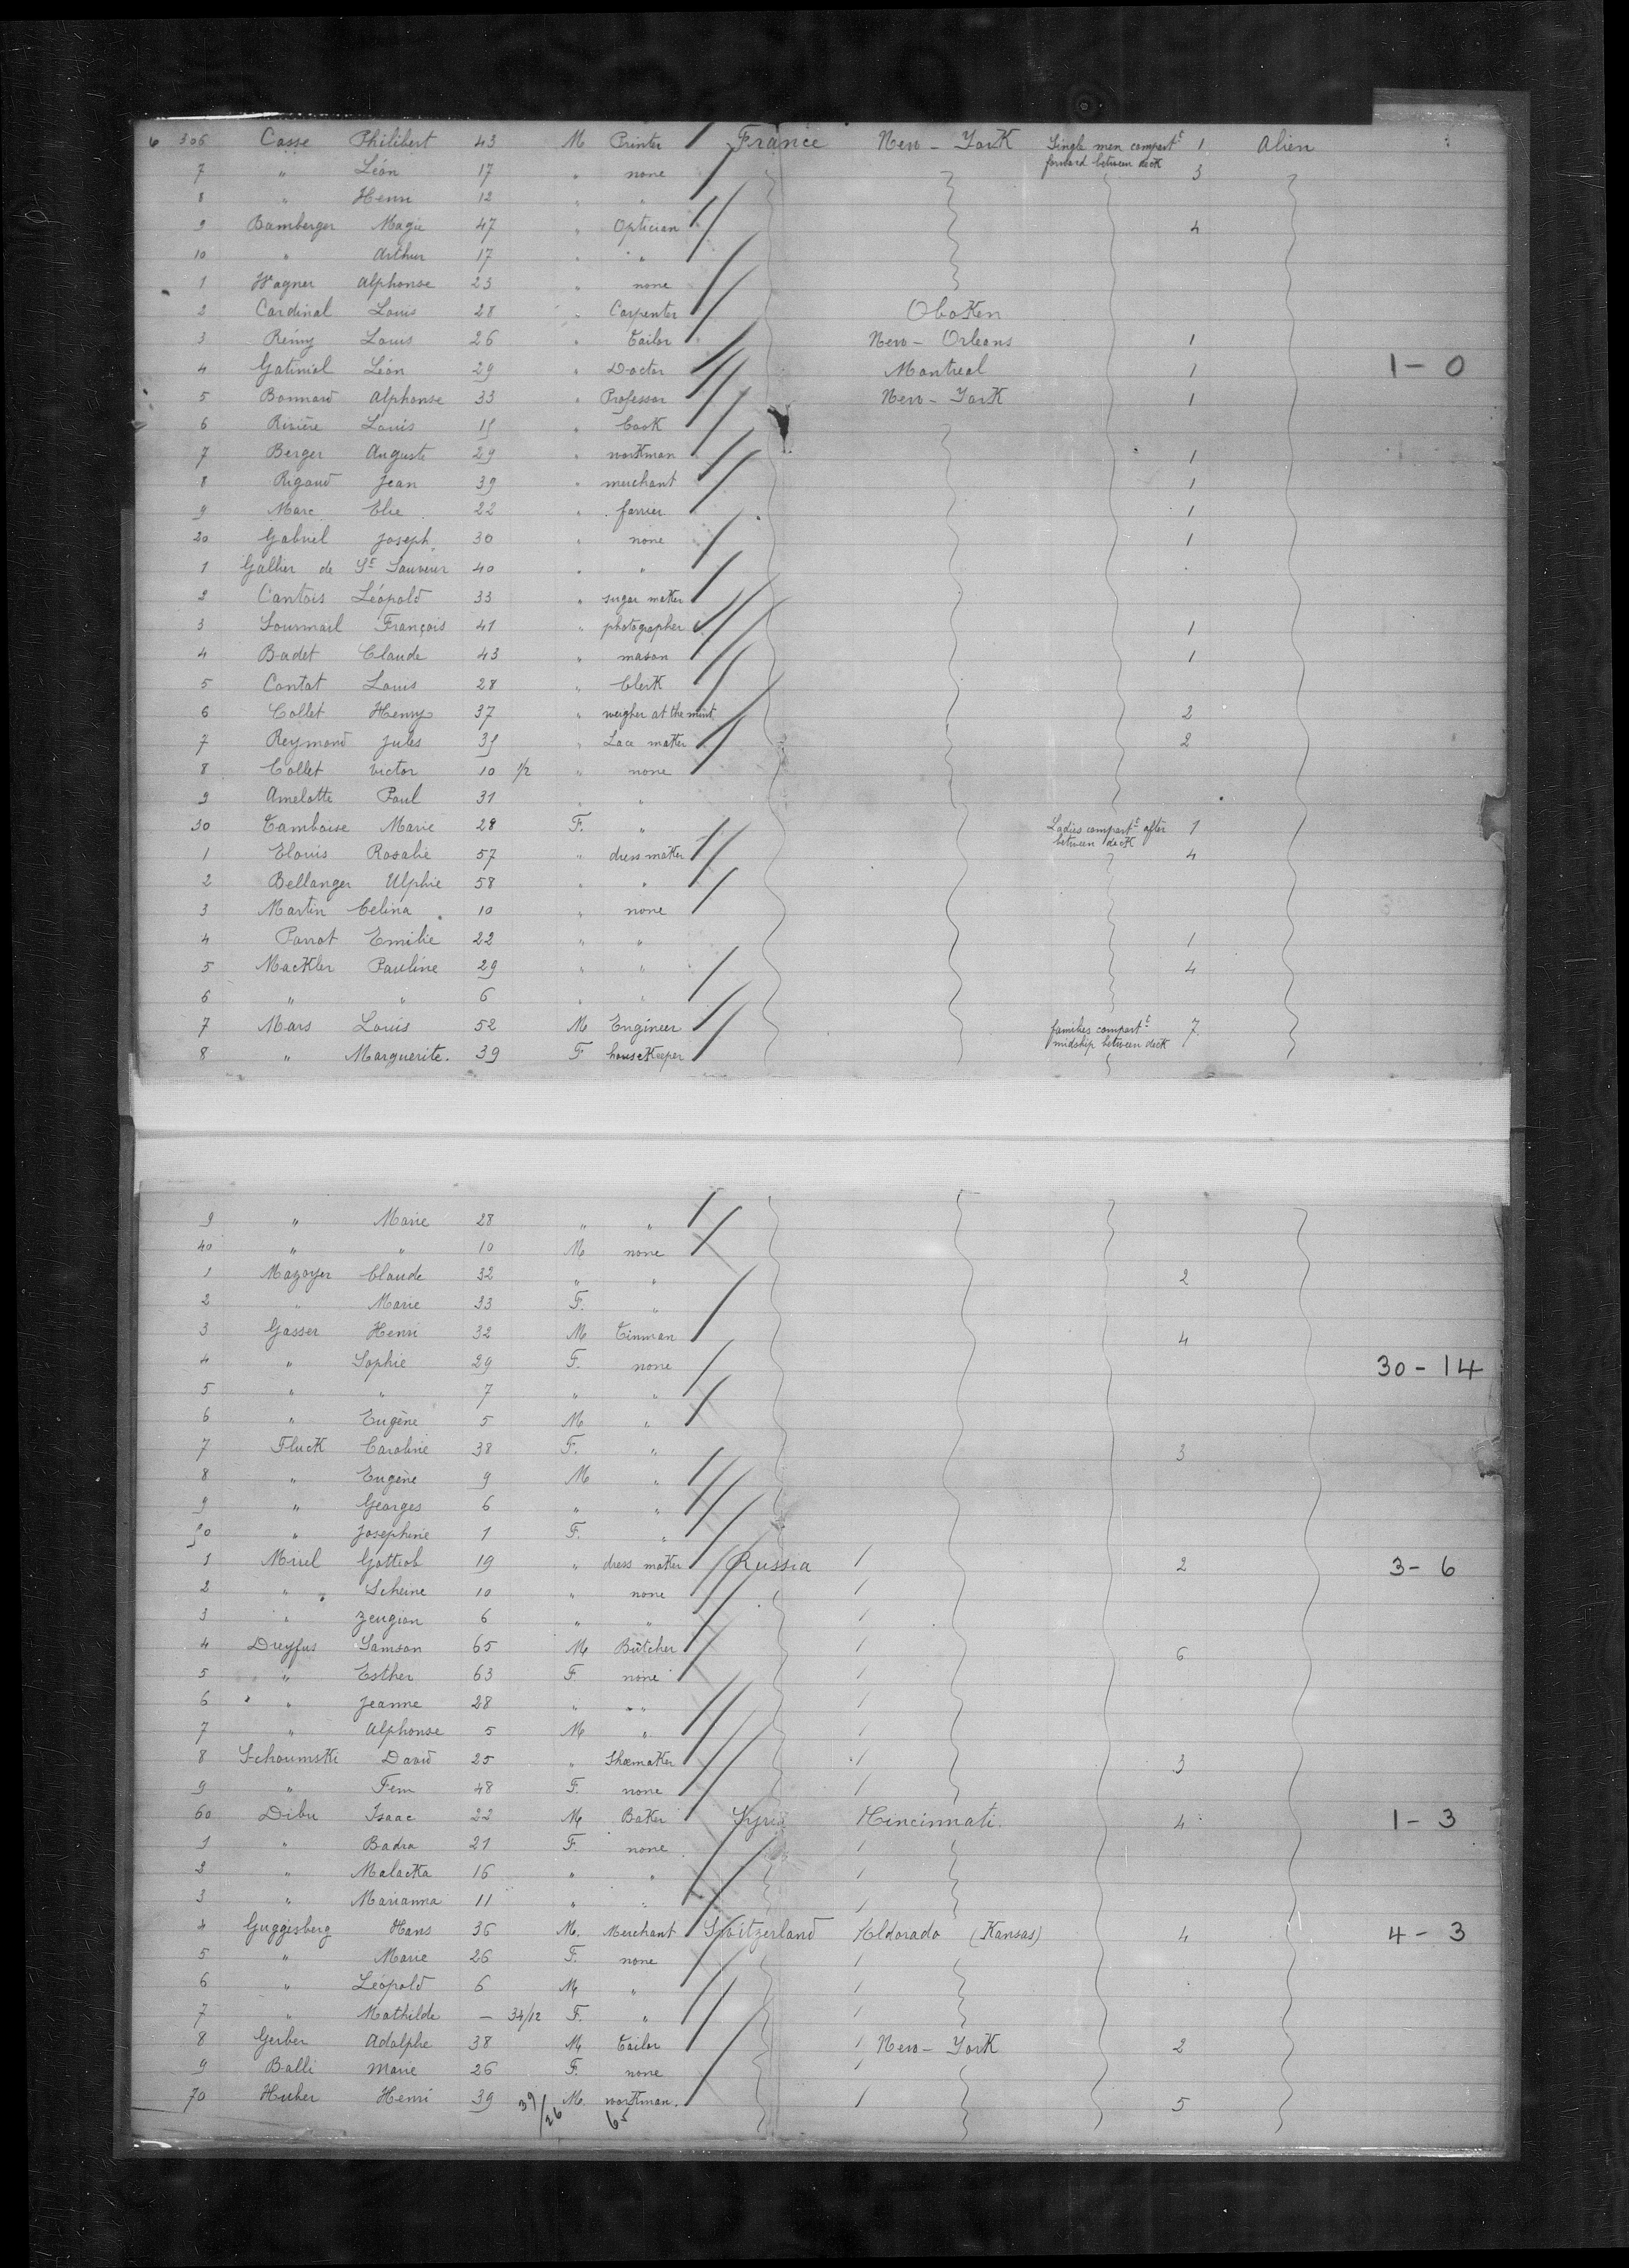 6 306 Casse Philibert 43 M Printer France New-York Single men compart.t forward between deck 1 Alien
7 " Léon 17 " none 3
8 " Henri 12 " "
9 Bamberger Magie 47 " Optician 4
10 " Arthur 17 " "
1 Wagner Alphonse 23 " none
2 Cardinal Louis 28 " Carpenter Oboken
3 Rémy Louis 26 " Tailor New-Orleans 1
4 Gatiniol Léon 29 " Doctor Montreal 1 1-0
5 Bonnard Alphonse 33 " Professor New-York 1
6 Rivière Louis " Cook
7 Berger Auguste 29 " workman 1
8 Rigaud Jean 39 " merchant 1
9 Marc Elie 22 " farrier 1
20 Gabriel Joseph 30 " none 1
1 Gallier de St Sauveur 40 " "
2 Cantois Léopold 33 " sugar maker
3 Sourmail François 41 " photographer 1
4 Badet Claude 43 " mason 1
5 Contat Louis 28 " Clerk
6 Collet Henry 37 " weigher at the mint 2
7 Reymond Jules " Lace maker 2
8 Collet Victor 10 1/2 " none
9 Amelotte Paul 31 " "
30 Tamboise Marie 28 F. " Ladies compart.t after between deck 1
1 Elouis Rosalie 57 " dress maker 4
2 Bellanger Ulphie 58 " "
3 Martin Celina 10 " none
4 Parrot Emilie 22 " " 1
5 Mackler Pauline 29 " " 4
6 " " 6 " "
7 Mars Louis 52 M Engineer families compart.t midship between deck 7
8 " Marguerite. 39 F housekeeper
9 " Marie 28 " "
40 " " 10 M none
1 Mazoyer Claude 32 " " 2
2 " Marie 33 F. "
3 Gasser Henri 32 M Tinman 4
4 " Sophie 29 F. none 30-14
5 " " 7 " "
6 " Eugène 5 M "
7 Fluck Caroline 38 F. " 3
8 " Eugène 9 M "
9 " Georges 6 " "
50 " Josephine 1 F. "
1 Miril Gottiob 19 " dress maker Russia / 2 3-6
2 " Scheine 10 " none /
3 " Zeugion 6 " " /
4 Dreyfus Samson 65 M Butcher / 6
5 " Esther 63 F none /
6 " Jeanne 28 " " /
7 " Alphonse 5 M " /
8 Schoumski David 25 " Shoemaker / 3
9 " Fem 48 F. none /
60 Dibu Isaac 22 M Baker Syria / Cincinnati. 4 1-3
1 " Badra 21 F. none /
2 " Malacka 16 " " /
3 " Marianna 11 " " /
4 Guggisberg Hans 36 M. Merchant Switzerland / Eldorado (Kansas) 4 4-3
5 " Marie 26 F. none /
6 " Léopold 6 M " /
7 " Mathilde - 34/12 F. " /
8 Gerber Adolphe 38 M Tailor / New-York 2
9 Balli Marie 26 F. none /
70 Huber Henri 39 M. workman. / 5
39/26 65